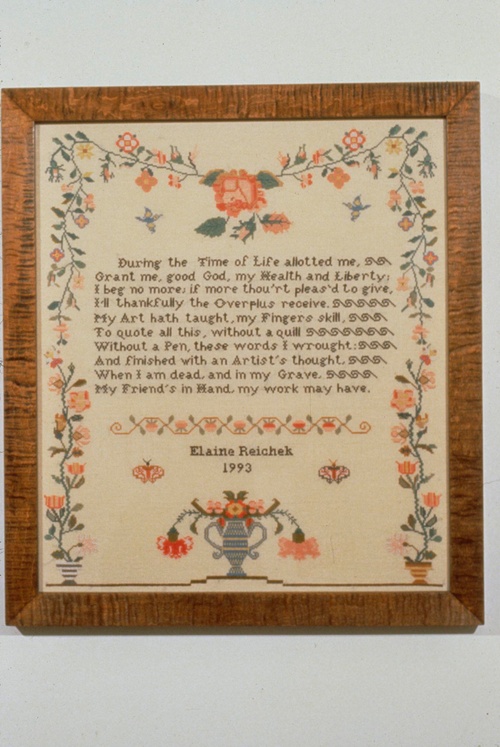 During the Time of Life allotted me,
Grant me, good God, my Health and Liberty;
I beg no more; if more thou'rt pleas'd to give,
I'll thankfully the Overplus receive.
My Art hath taught, my Fingers skill,
To quote all this, without a quill
Without a Pen, these words I wrought:
And finished with an Artist's thought.
When I am dead, and in my Grave.
My Friend's in Hand, my work may have.
Elaine Reichek
1993